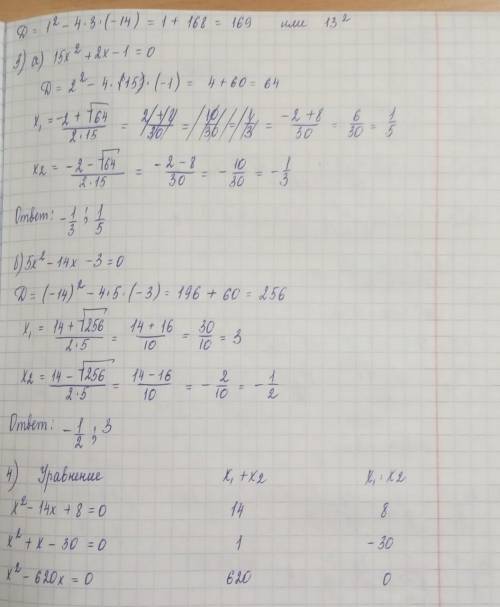 D = 1² - 4 · 3 · (-14) = 1 + 168 = 169 или 13²
3) а) 15x² + 2x - 1 = 0
D = 2² - 4 · (15) · (-1) = 4 + 60 = 64
x₁ = (-2 + √64)/(2·15) = = = = (-2 + 8)/30 = 6/30 = 1/5
x2 = (-2 - √64)/(2·15) = (-2 - 8)/30 = -10/30 = -1/3
Ответ: -1/3 ; 1/5
б) 5x² - 14x - 3 = 0
D = (-14)² - 4 · 5 · (-3) = 196 + 60 = 256
x₁ = (14 + √256)/(2·5) = (14 + 16)/10 = 30/10 = 3
x2 = (14 - √256)/(2·5) = (14 - 16)/10 = -2/10 = -1/2
Ответ: -1/2 ; 3
4) Уравнение x₁ + x2 x₁ · x2
x² - 14x + 8 = 0 14 8
x² + x - 30 = 0 1 -30
x² - 620x = 0 620 0